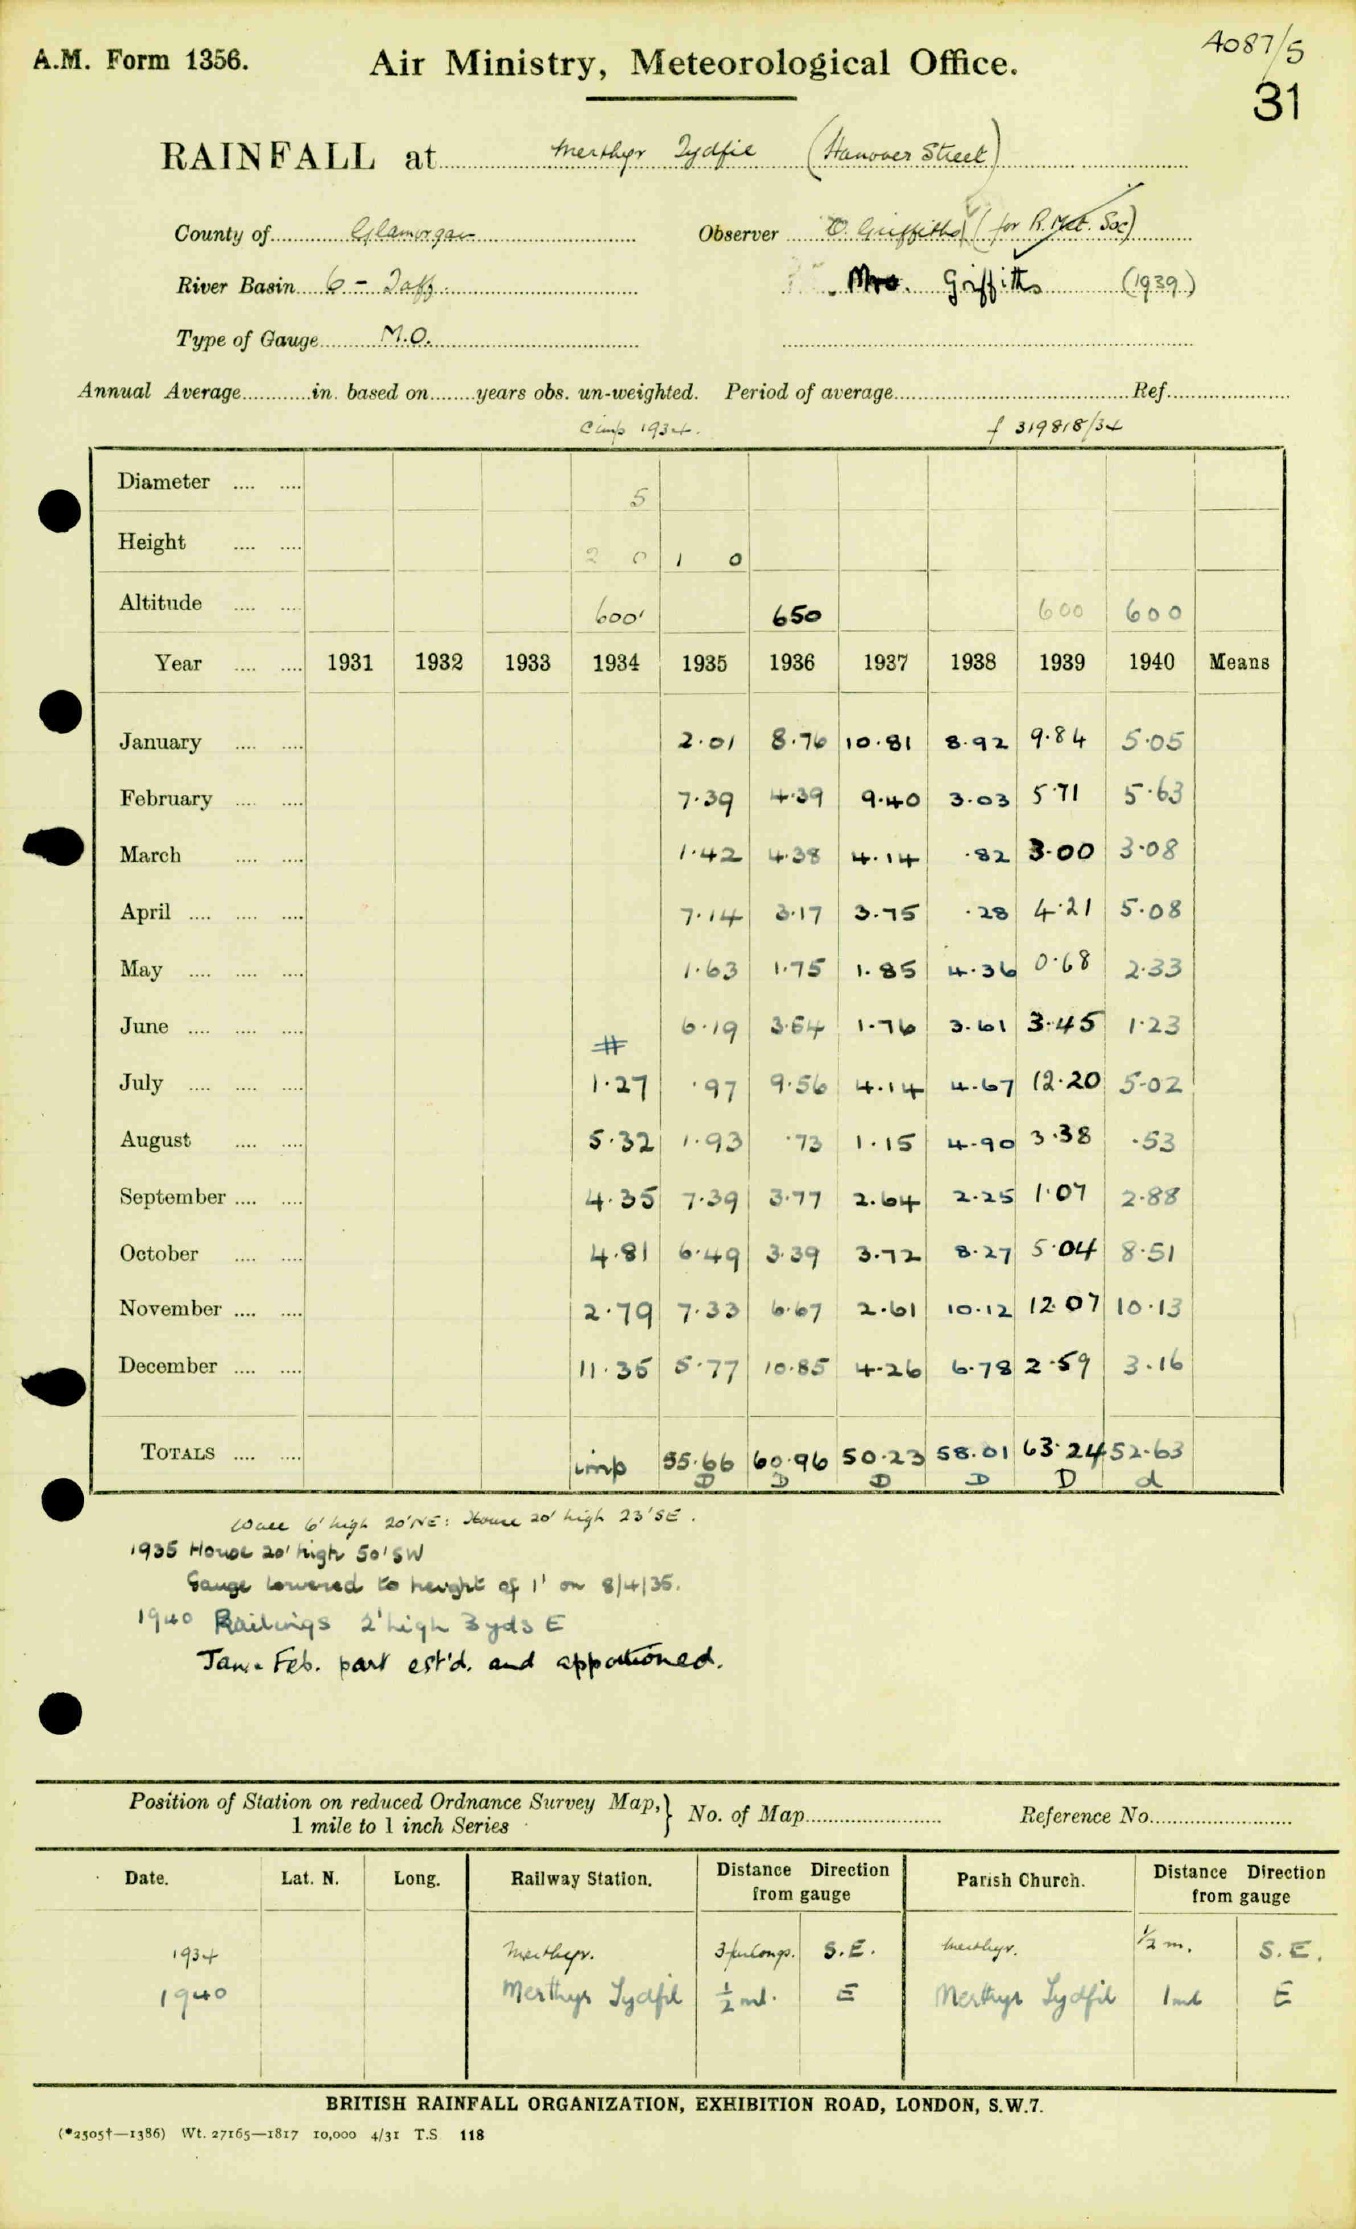 A087/5
A.M. Form 1356. Air Ministry, Meteorological Office.
31
RAINFALL at Merthyr Tydfil (Hanover Street)
County of Glamorgan Observer O. Griffiths (for R. Met. Soc)
River Basin 6 - Taff Mrs. Griffiths (1939)
Type of Gauge M.O.
Annual Average in. based on years obs. un-weighted. Period of average Ref.
Comp 1934. f 319818/34
Diameter 5
Height 2 0 1 0
Altitude 600' 650 600 600
Year 1931 1932 1933 1934 1935 1936 1937 1938 1939 1940 Means
January 2.01 8.76 10.81 8.92 9.84 5.05
February 7.39 4.39 9.40 3.03 5.71 5.63
March 1.42 4.38 4.14 .82 3.00 3.08
April 7.14 3.17 3.75 .28 4.21 5.08
May 1.63 1.75 1.85 4.36 0.68 2.33
June # 6.19 3.54 1.76 3.61 3.45 1.23
July 1.27 .97 9.56 4.14 4.67 12.20 5.02
August 5.32 1.93 .73 1.15 4.90 3.38 .53
September 4.35 7.39 3.77 2.64 2.25 1.07 2.88
October 4.81 6.49 3.39 3.72 8.27 5.04 8.51
November 2.79 7.33 6.67 2.61 10.12 12.07 10.13
December 11.35 5.77 10.85 4.26 6.78 2.59 3.16
TOTALS imp 55.66 60.96 50.23 58.01 63.24 52.63
D D D D D d
Wall 6' high 20' NE: House 20' high 23' SE.
1935 House 20' high 50' SW
Gauge lowered to height of 1' on 8/4/35.
1940 Railings 2' high 3 yds E
Jan. Feb. part est'd. and apportioned.
Position of Station on reduced Ordnance Survey Map, } No. of Map Reference No.
1 mile to 1 inch Series
Date. Lat. N. Long. Railway Station. Distance Direction from gauge Parish Church. Distance Direction from gauge
1934 Merthyr. 3 furlongs. S.E. Merthyr. 1/2 m. S.E.
1940 Merthyr Tydfil 1/2 ml. E Merthyr Tydfil 1 ml E
BRITISH RAINFALL ORGANIZATION, EXHIBITION ROAD, LONDON, S.W.7.
(*2505†—1386) Wt. 27165—1817 10,000 4/31 T.S 118